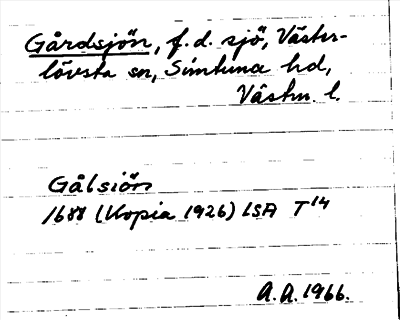 Gårdsjön, f.d. sjö, Väster-
lövsta sn, Simtuna hd,
Västm. l.
Gålsiön
1688 (Kopia 1926) LSA T14
A.A. 1966.